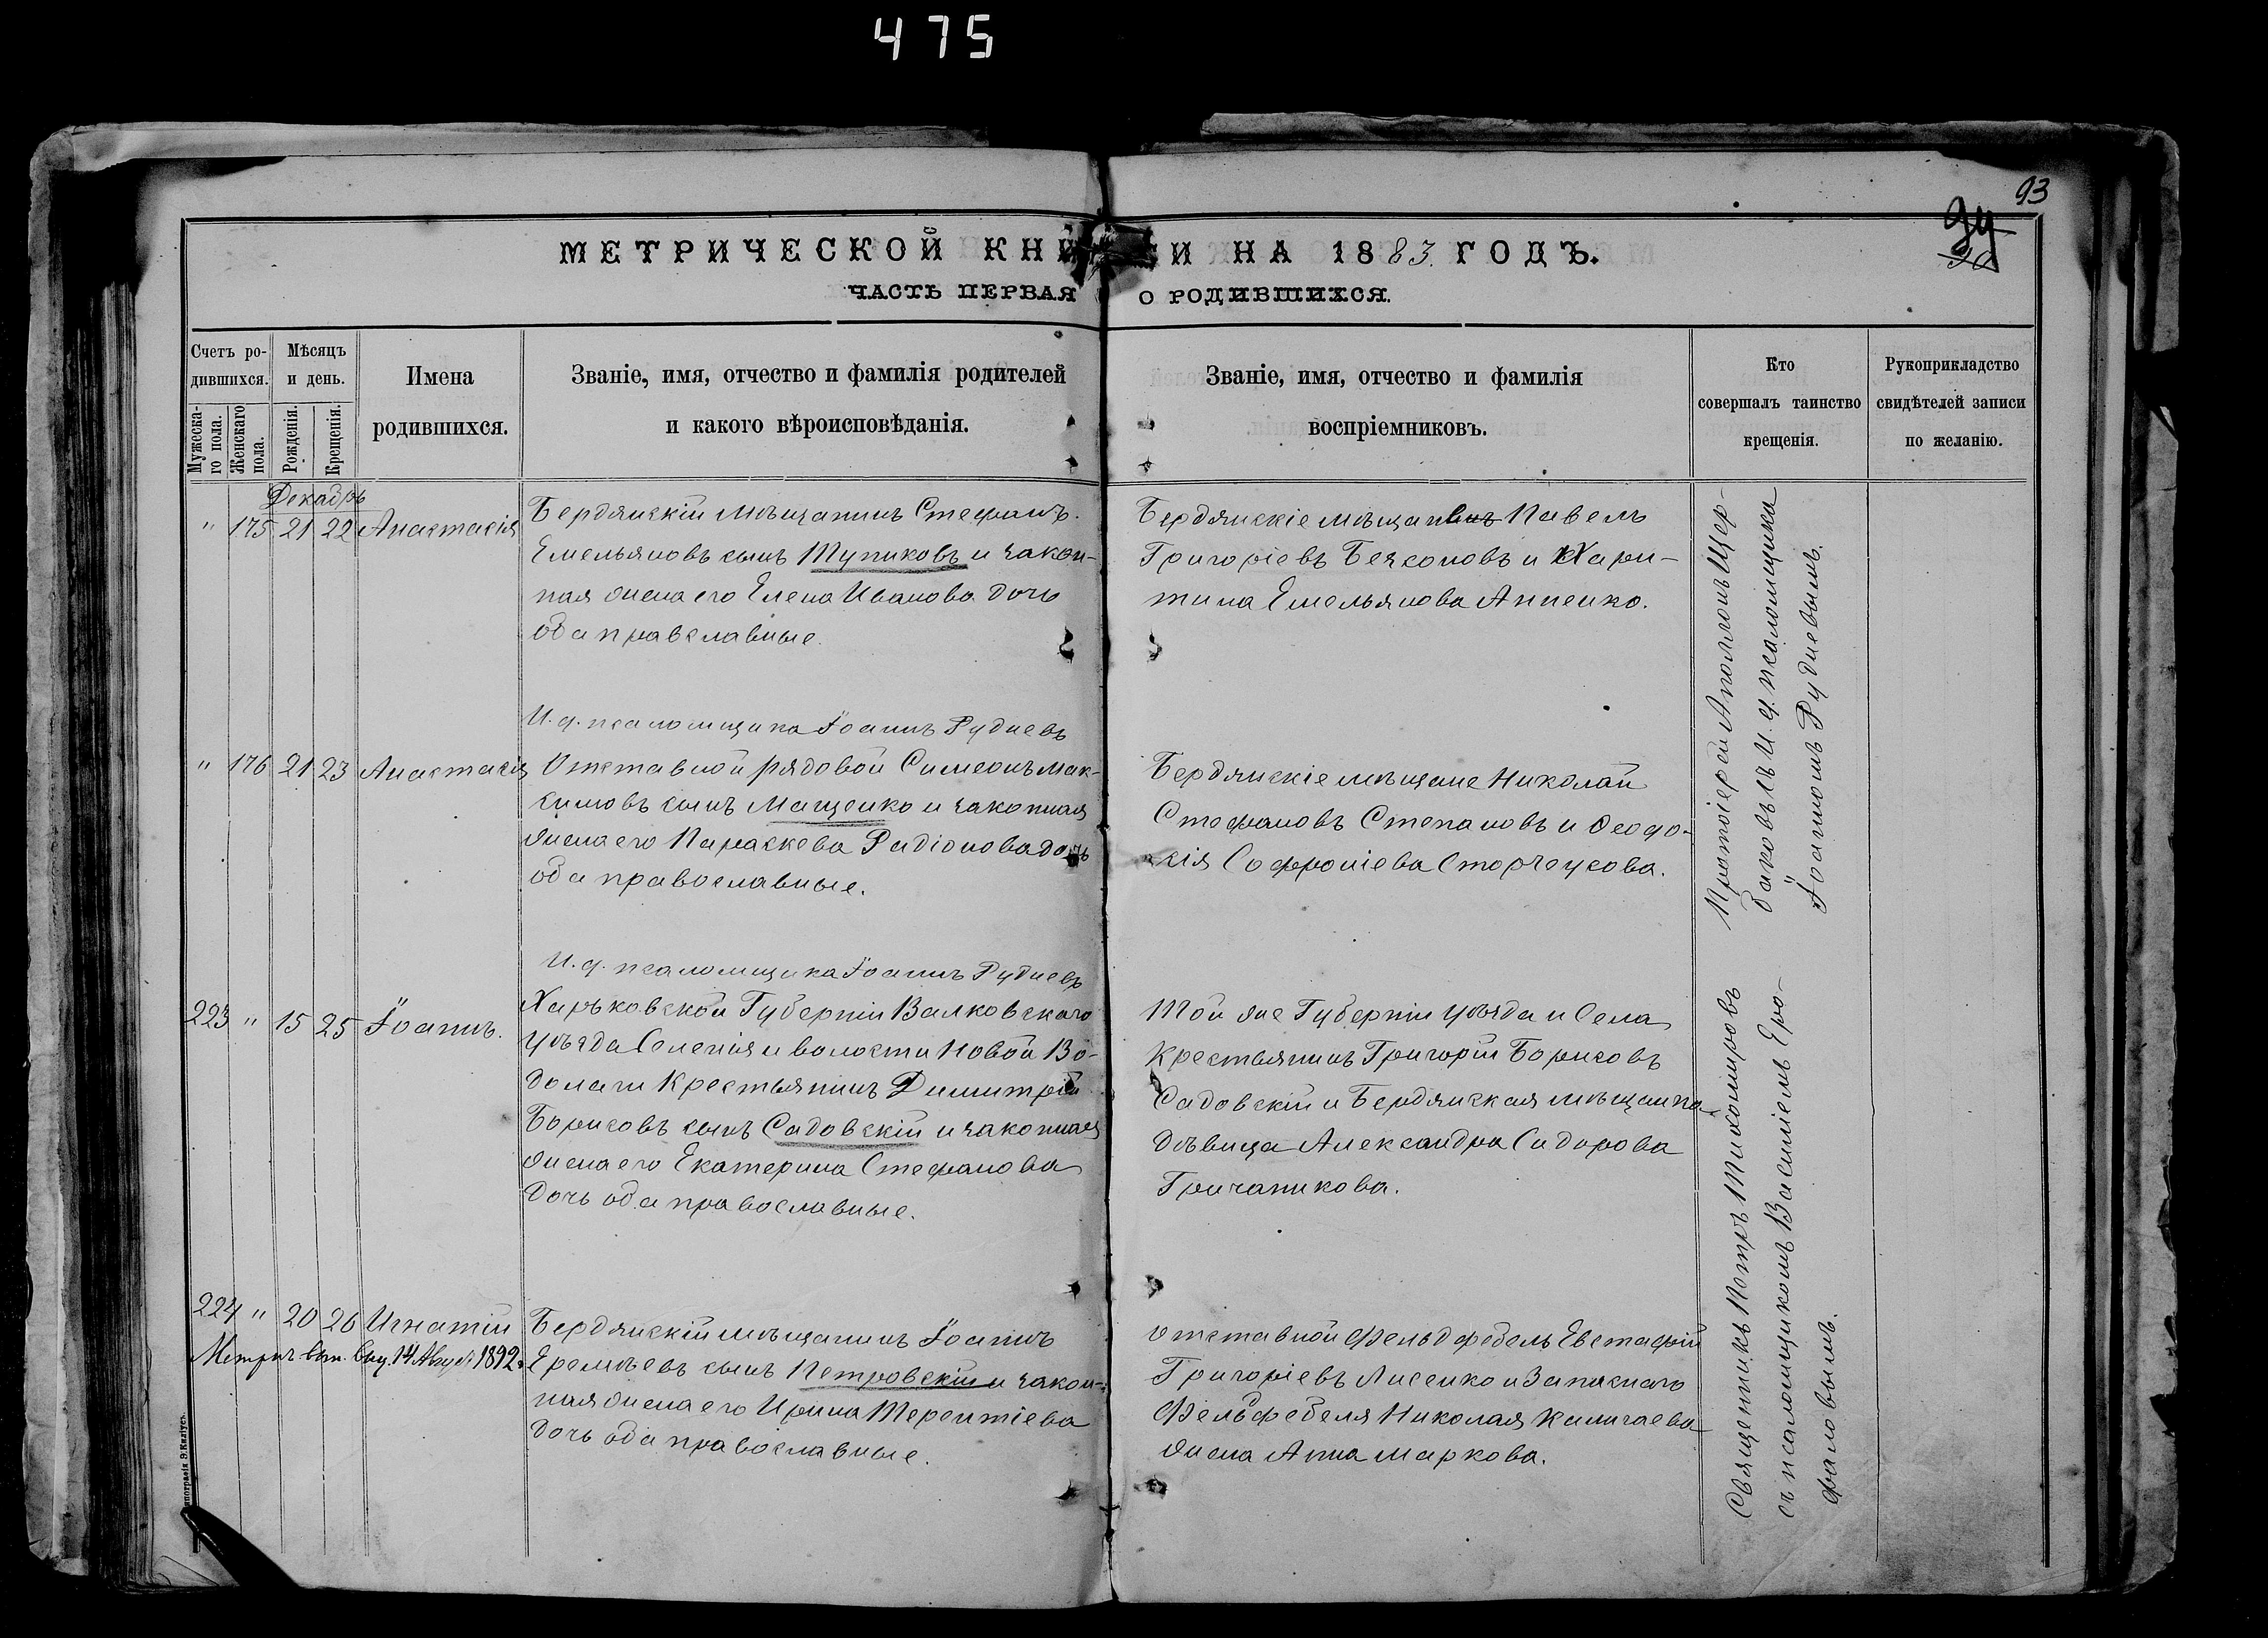 475
93
94
МЕТРИЧЕСКОЙ КНИГИ НА 1883 ГОДЪ.
ЧАСТЬ ПЕРВАЯ О РОДИВШИХСЯ.
Счетъ ро-
дившихся.
Мужеска-
го пола.
Женскаго
пола.
Мѣсяцъ
и день.
Рожденія.
Крещенія.
Имена
родившихся.
Званіе, имя, отчество и фамилія родителей
и какого вѣроисповѣданія.
Званіе, имя, отчество и фамилія
воспріемниковъ.
Кто
совершалъ таинство
крещенія.
Рукоприкладство
свидѣтелей записи
по желанію.
Декабрь
" 175 21 22 Анастасія
Бердянскій мѣщанинъ Стефанъ
Емельяновъ сынъ Тупиковъ и закон-
ная жена его Елена Иванова дочь
оба православные.
Бердянскіе мѣщане Павелъ
Григоріевъ Безсоновъ и Хари-
тина Емельянова Анненко.
И. д. псаломщика Іоаннъ Рудневъ
" 176 21 23 Анастасія
Отставной рядовой Симеонъ Мак-
симовъ сынъ Мащенко и законная
жена его Параскева Радіонова дочь
оба православные.
Бердянскіе мѣщане Николай
Стефановъ Степановъ и Феодо-
сія Софроніева Сторчеусова.
Протоіерей Аполлонъ Щер-
баковъ съ И. д. псаломщика
Іоанномъ Рудневымъ.
И. д. псаломщика Іоаннъ Рудневъ
223 " 15 25 Іоаннъ.
Харьковской Губерніи Валковскаго
уѣзда Селенія и волости Новой Во-
долаги Крестьянинъ Димитрій
Борисовъ сынъ Садовскій и законная
жена его Екатерина Стефанова
дочь оба православные.
Той же Губерніи уѣзда и Села
Крестьянинъ Григорій Борисовъ
Садовскій и Бердянская мѣщанка
дѣвица Александра Сидорова
Гричаникова.
224 " 20 26 Игнатій
Метрич. вып. выд. 14 Август 1892.
Бердянскій мѣщанинъ Іоаннъ
Еремѣевъ сынъ Петровскій и закон-
ная жена его Ирина Терентіева
дочь оба православные.
отставной Фельдфебель Евстафій
Григоріевъ Лисенко и Запаснаго
Фельдфебеля Николая Каличаева
жена Анна Маркова.
Священникъ Петръ Тихомировъ
съ псаломщикомъ Василіемъ Еро-
фаловымъ.